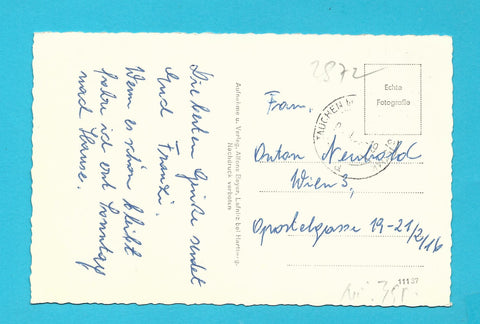 Die besten Grüße sendet
Euch Franzi.
Wenn es schön bleibt
fahre ich erst Sonntag
nach Hause.
Aufnahme u. Verlag: Alfred Bayer, Lafnitz bei Hartberg.
Nachdruck verboten
2872
Echte
Fotografie
Fam.
Anton Neubold
Wien 3,
Apostelgasse 19-21/2/16
11137